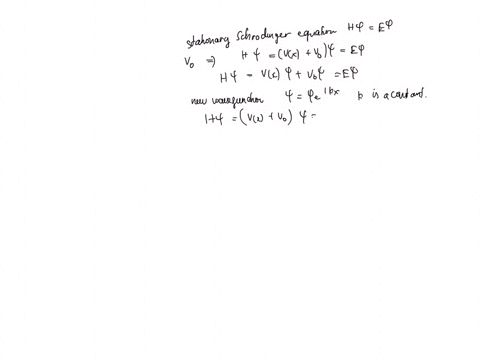 stationary Schrodinger equation Hφ = Eφ
V₀ ⇒ Hψ = (V(x) + V₀)ψ = Eφ
Hψ = V(x) φ + V₀ψ = Eφ
new wavefunction ψ = φe^ibx b is a constant.
Hψ = (V(x) + V₀) ψ =